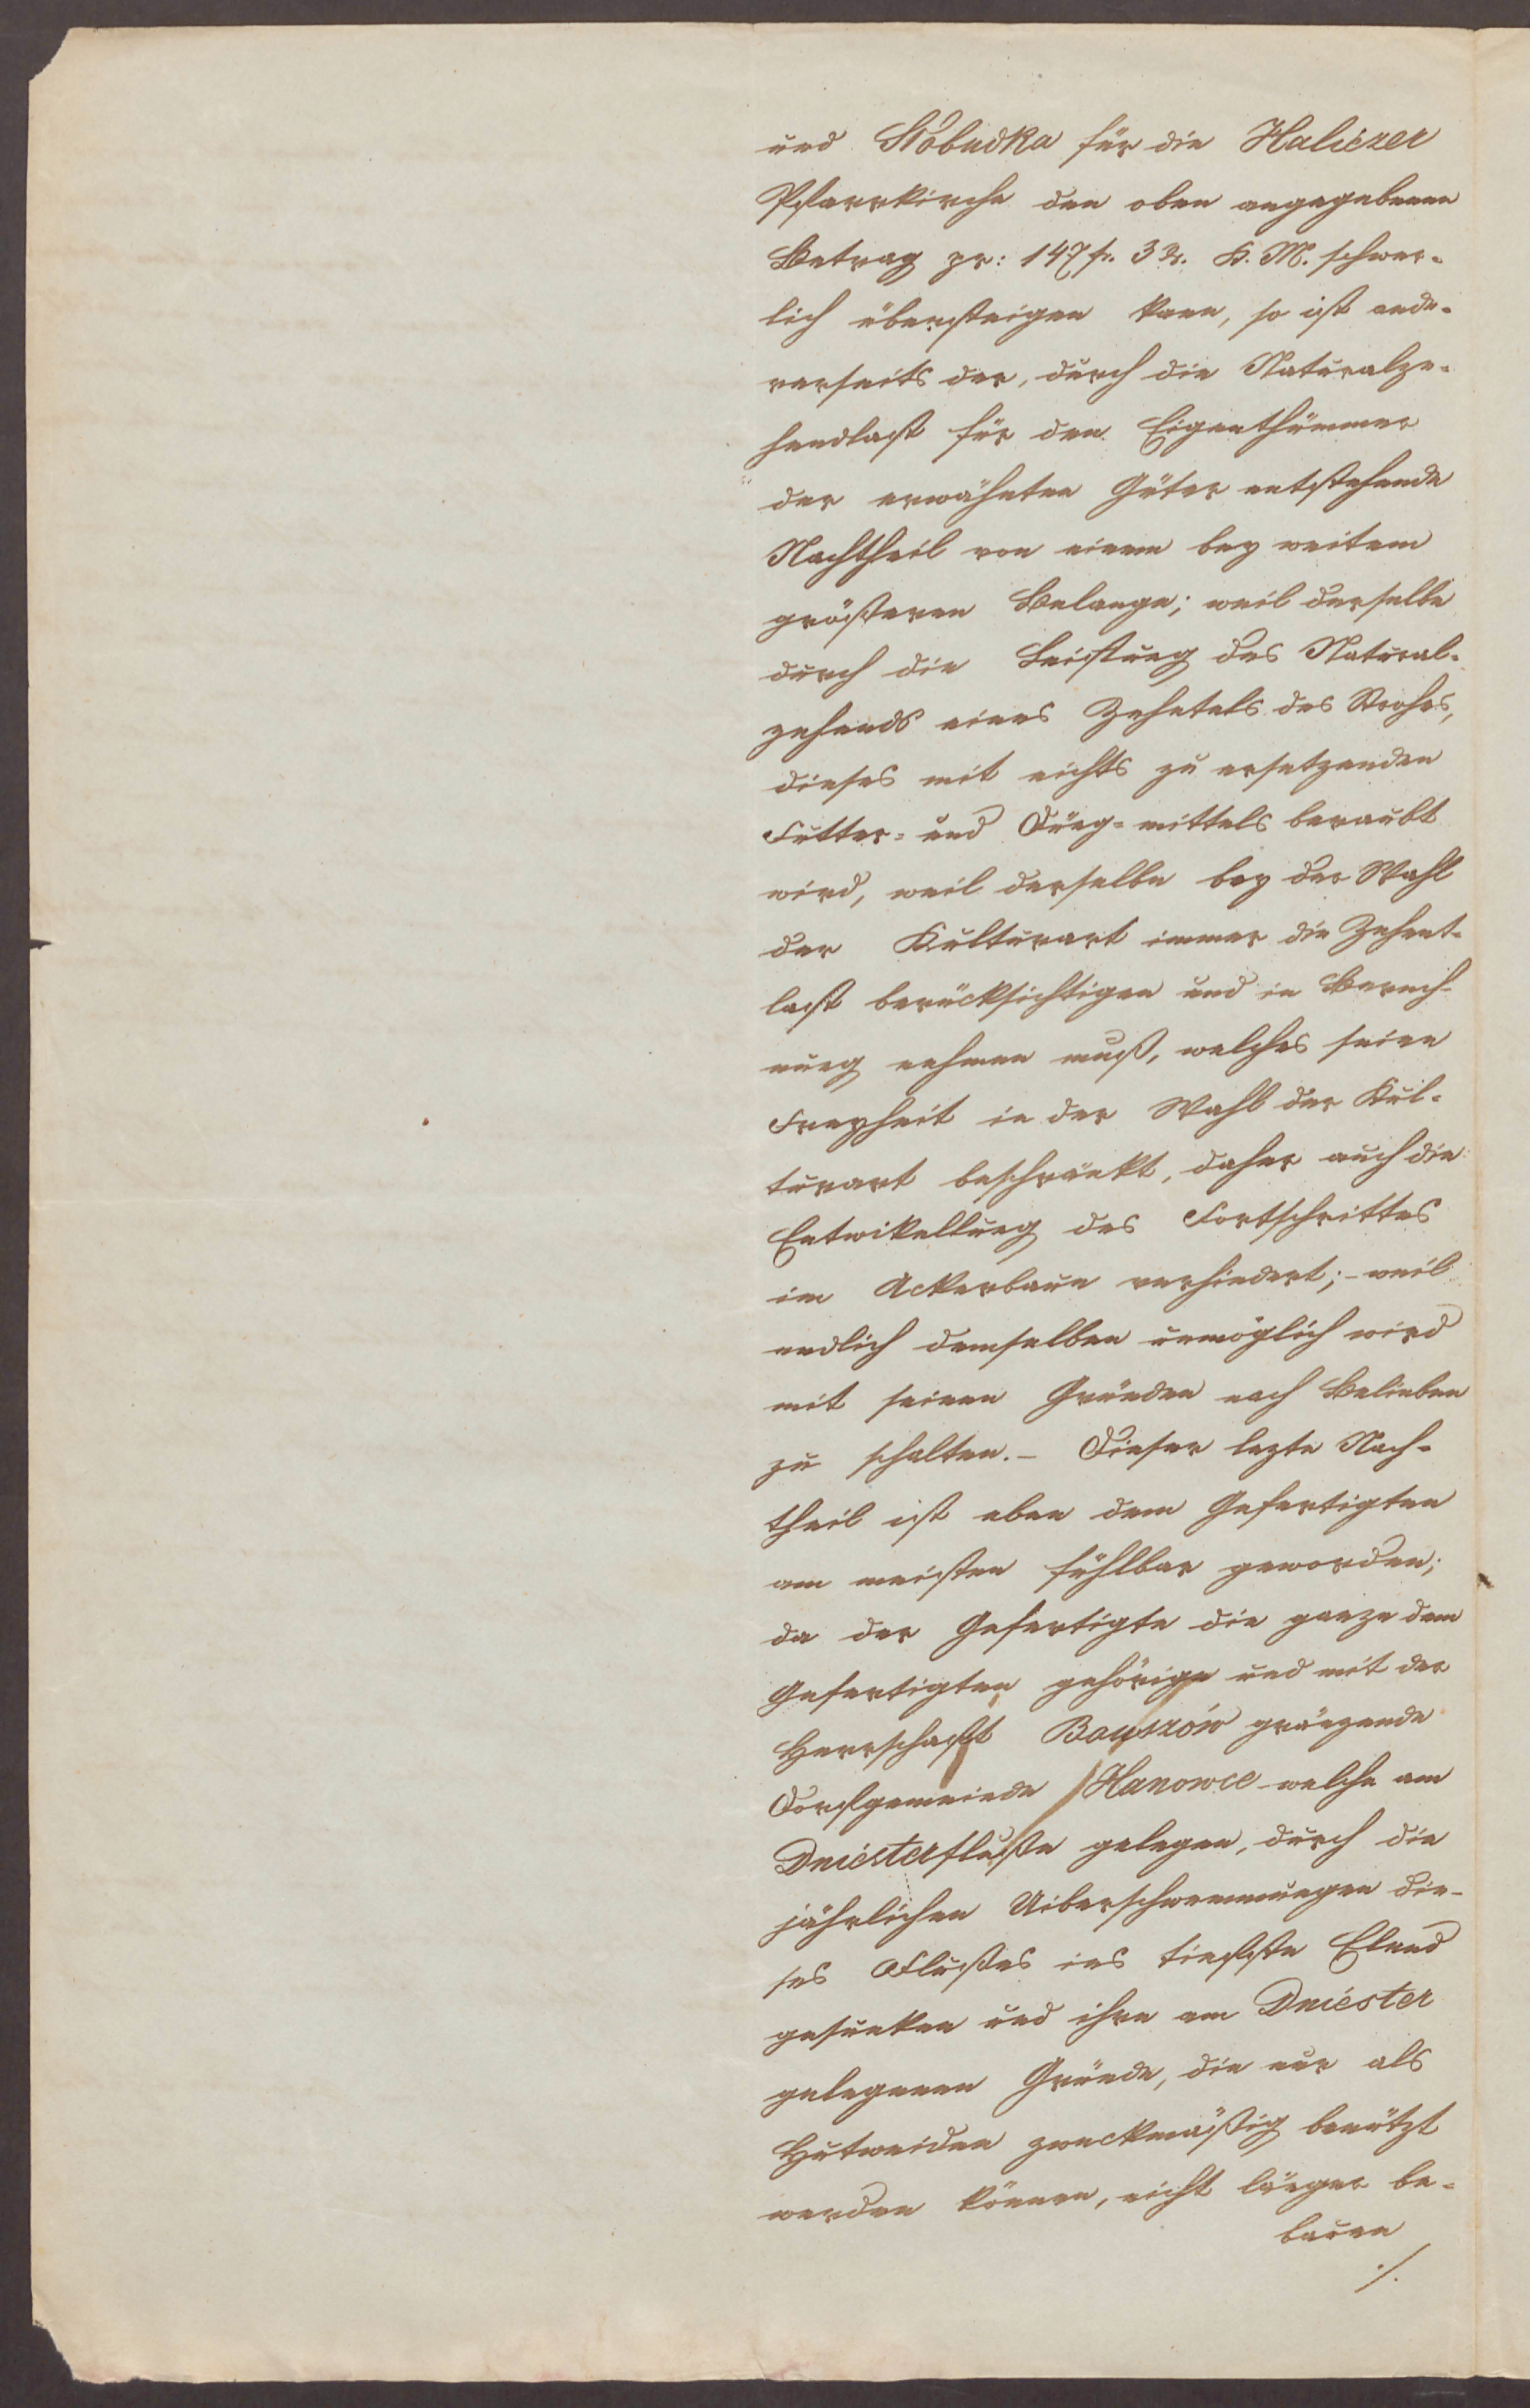 und Słobudka für die Haliczer
Pfarrkirche den oben angegebenen
Betrag pr: 147 fr. 3 Xr. K. M. schwer-
lich übersteigen kann, so ist ande-
rerseits der, durch die Naturalze-
hendlast für den Eigenthümmer
der erwähnten Güter entstehende
Nachtheil von einem bey weitem
größeren Belange; weil derselbe
durch die Leistung des Natural-
zehends eines Zehntels des Strohes,
dieses mit nichts zu ersetzenden
Futter- und Düng-mittels beraubt
wird, weil derselbe bey der Wahl
der Kulturart immer die Zehent-
last berücksichtigen und in Berech-
nung nehmen muß, welches seine
Freyheit in der Wahl der Kul-
turart beschränkt, daher auch die
Entwikellung des Fortschrittes
im Ackerbaue verhindert; - weil
endlich demselben unmöglich wird
mit seinen Gründen nach Belieben
zu schalten. - Dieser lezte Nach-
theil ist eben dem Gefertigten
am meisten fühlbar geworden;
da der Gefertigte die ganze dem
Gefertigten gehörige und mit der
Herrschaft Bouszów gränzende
Dorfgemeinde Hanowce welche am
Dniesterfluße gelegen, durch die
jährlichen Uiberschwemmungen die-
ses Flußes ins tiefste Elend
gesunken und ihre am Dniester
gelegenen Gründe, die nur als
Hutweiden zweckmäßig benützt
werden können, nicht länger be-
bauen
./.